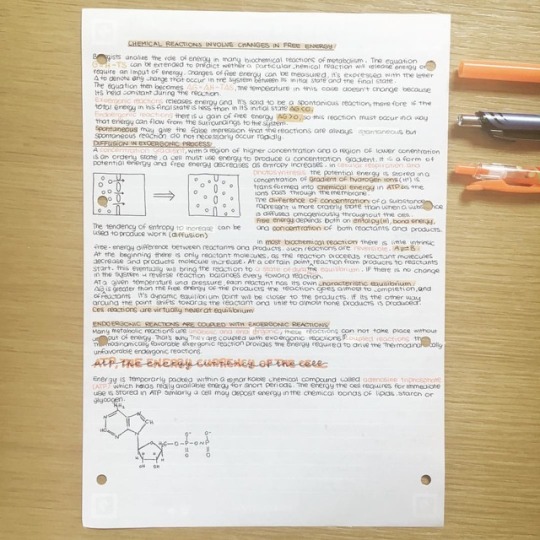 CHEMICAL REACTIONS INVOLVE CHANGES IN FREE ENERGY
Biologists analise the role of energy in many biochemical reactions of metabolism. The equation
G=H-TS can be extended to predict wether a particular chemical reaction will release energy or
require an input of energy. Changes of free energy can be measured, it's expressed with the letter
Δ to denote any change that occur in the system between its initial state and the final state.
The equation then becomes ΔG=ΔH-TΔS, the temperature in this case doesn't change because
its held constant during the reaction.
Exergonic reactions releases energy and it's said to be a spontaneous reaction, therefore if the
total energy in his final state is less than in its initial state ΔG<0
Endergonic reactions there is a gain of free energy ΔG>0, so this reaction must occur in a way
that energy can flow from the surroundings to the system.
Spontaneous may give the false impression that the reactions are always instantaneous but
spontaneous reaction do not necessarily occur rapidly
DIFFUSION IN EXERGONIC PROCESS:
A concentration gradient, with a region of higher concentration and a region of lower concentration
is an orderly state, a cell must use energy to produce a concentration gradient. It is a form of
potential energy and free energy decreases as entropy increases. In cellular respiration and
photosynthesis the potential energy is stored in a
concentration of gradient of hydrogen ions (H+) is
transformed into chemical energy in ATP as the
ions pass through the membrane.
The difference of concentration of a substance
represent a more orderly state than when a substance
is diffused omogeniously throughout the cell.
Free energy depends both on entropy (H), bond energy,
and concentration of both reactants and products.
The tendency of entropy to increase can be
used to produce work (diffusion).
In most biochemical reaction there is little intrinsic
free-energy difference between reactants and products. Such reactions are reversible. A⇌B
At the beginning there is only reactant molecules, as the reaction proceeds reactant molecules
decrease and products molecule increase. At a certain point, reaction from products to reactants
start, this eventually will bring the reaction to a state of dynamic equilibrium. If there is no change
in the system a reverse reaction balances every forward reaction.
At a given temperature and pressure, each reactant has its own characteristic equilibrium.
ΔG is greater than the free energy of the products the reaction goes almost to completion, and
of reactants. It's dynamic equilibrium point will be closer to the products. If its the other way
around the point shifts towards the reactant and little to almost none products is produced.
Cell reactions are virtually never at equilibrium
ENDERGONIC REACTIONS ARE COUPLED WITH EXERGONIC REACTIONS:
Many metabolic reactions are anabolic and endergonic, these reactions can not take place without
an input of energy. That's why this are coupled with exergonic reactions. Coupled reactions, the
thermodinamically favorable exergonic reaction provides the energy required to drive the thermodinamically
unfavorable endergonic reactions.
ATP, THE ENERGY CURRENCY OF THE CELL
Energy is temporarily packed within a remarkable chemical compound called adenosine triphosphate
(ATP), which holds really available energy for short periods. The energy the cell requires for immediate
use is stored in ATP similarly a cell may deposit energy in the chemical bonds of lipids, starch or
glycogen.